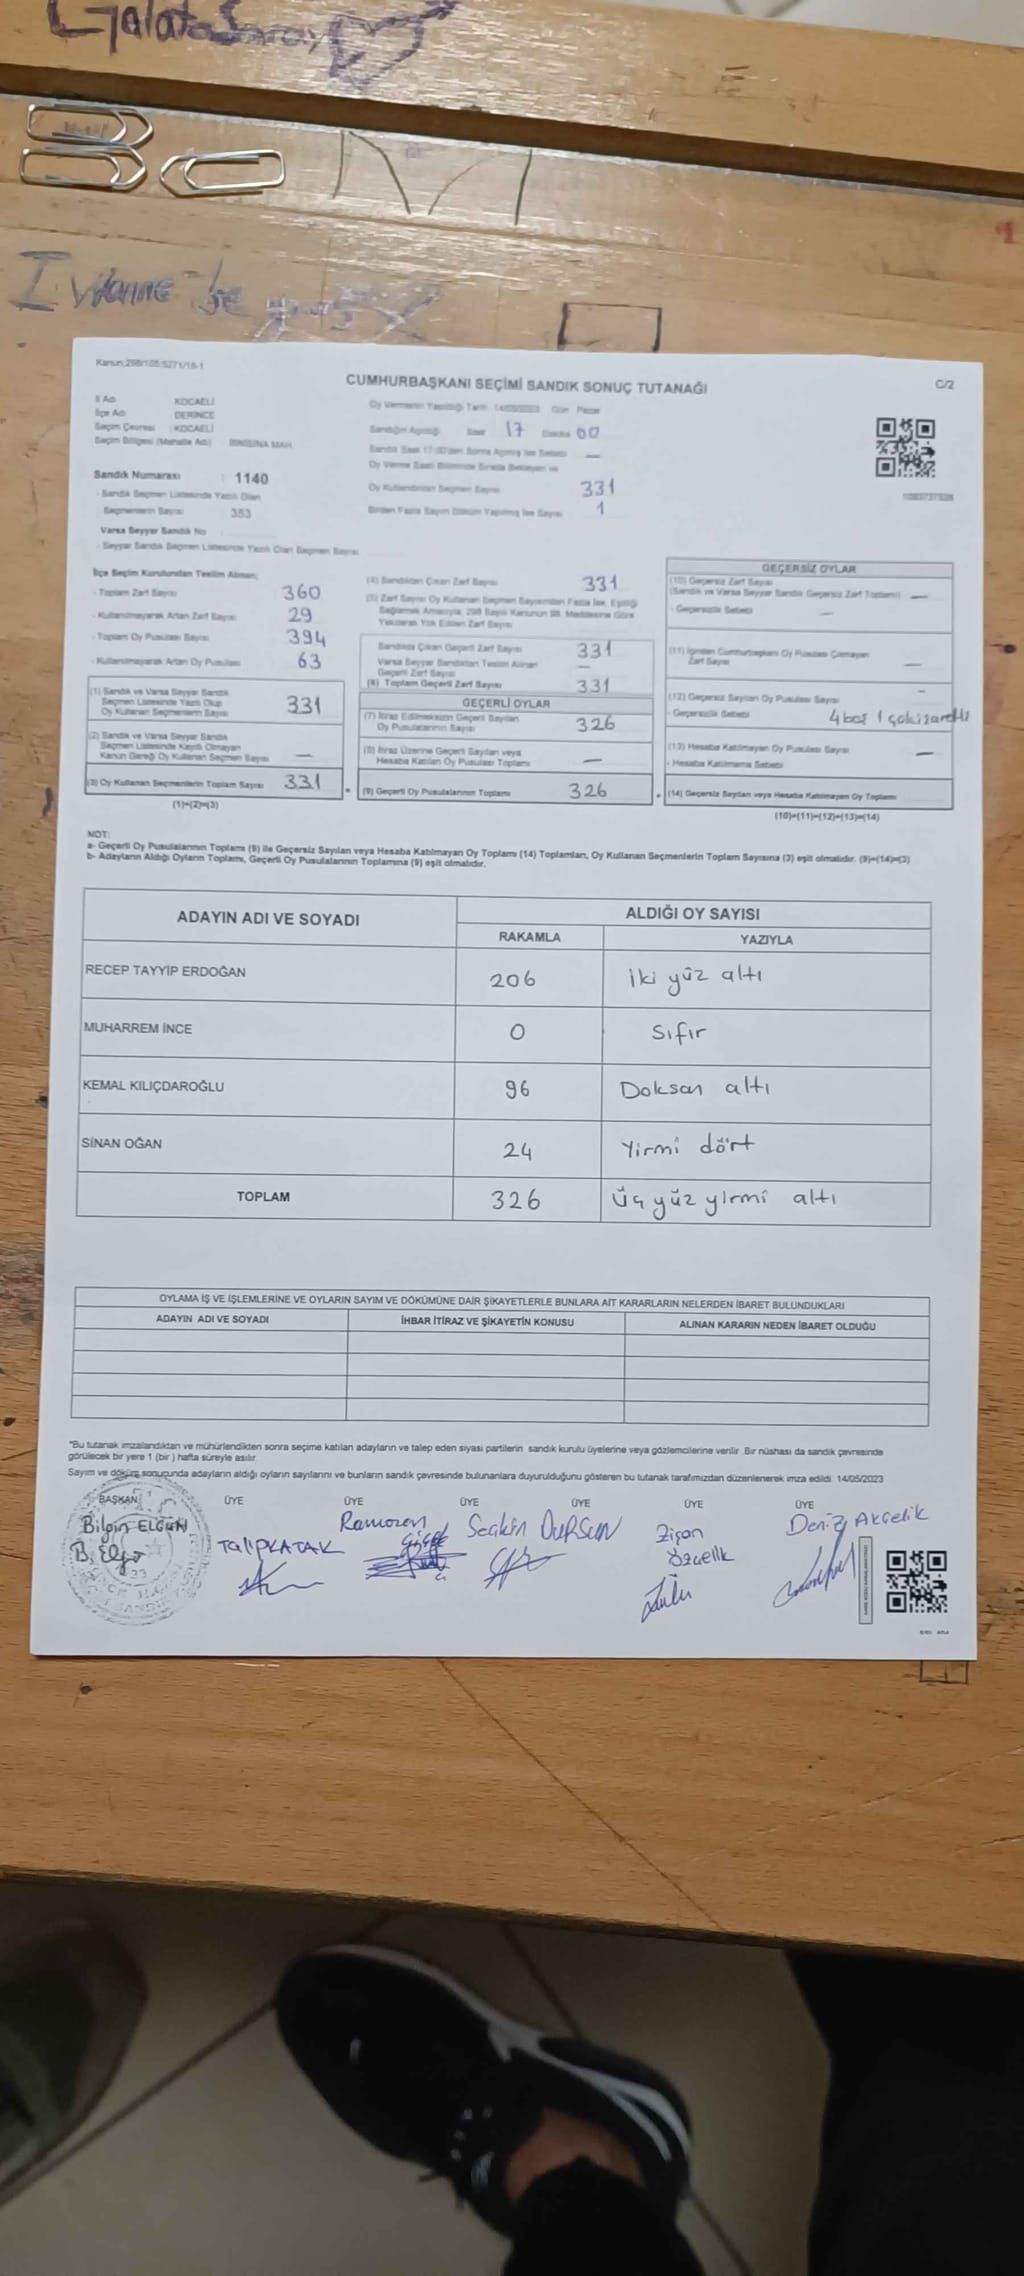 Galatasaray
Kanun;298/105;6271/18-1
CUMHURBAŞKANI SEÇİMİ SANDIK SONUÇ TUTANAĞI
C/2
İl Adı KOCAELİ
İlçe Adı DERİNCE
Seçim Çevresi : KOCAELİ
Seçim Bölgesi (Mahalle Adı) İBNİSİNA MAH.
Oy Vermenin Yapıldığı Tarih : 14/05/2023 Gün Pazar
Sandığın Açıldığı Saat 17 Dakika 00
Oy Kullandırılan Seçmen Sayısı 331
Birden Fazla Sayım Döküm Yapılmış İse Sayısı 1
Sandık Numarası : 1140
- Sandık Seçmen Listesinde Yazılı Olan
Seçmenlerin Sayısı 353
Varsa Seyyar Sandık No
- Seyyar Sandık Seçmen Listesinde Yazılı Olan Seçmen Sayısı
İlçe Seçim Kurulundan Teslim Alınan;
- Toplam Zarf Sayısı 360
- Kullanılmayarak Artan Zarf Sayısı 29
- Toplam Oy Pusulası Sayısı 394
- Kullanılmayarak Artan Oy Pusulası 63
(1) Sandık ve Varsa Seyyar Sandık
Seçmen Listesinde Yazılı Olup
Oy Kullanan Seçmenlerin Sayısı 331
(2) Sandık ve Varsa Seyyar Sandık
Seçmen Listesinde Kaydı Olmayan
Kanun Gereği Oy Kullanan Seçmen Sayısı —
(3) Oy Kullanan Seçmenlerin Toplam Sayısı 331
(1)+(2)=(3)
(4) Sandıktan Çıkan Zarf Sayısı 331
(5) Zarf Sayısı Oy Kullanan Seçmen Sayısından Fazla İse, Eşitliği
Sağlamak Amacıyla, 298 Sayılı Kanunun 98. Maddesine Göre
Yakılarak Yok Edilen Zarf Sayısı
Sandıkta Çıkan Geçerli Zarf Sayısı 331
Varsa Seyyar Sandıktan Teslim Alınan
Geçerli Zarf Sayısı —
(6) Toplam Geçerli Zarf Sayısı 331
GEÇERLİ OYLAR
(7) İtiraz Edilmeksizin Geçerli Sayılan
Oy Pusulalarının Sayısı 326
(8) İtiraz Üzerine Geçerli Sayılan veya
Hesaba Katılan Oy Pusulası Toplamı —
(9) Geçerli Oy Pusulalarının Toplamı 326
GEÇERSİZ OYLAR
(10) Geçersiz Zarf Sayısı
(Sandık ve Varsa Seyyar Sandık Geçersiz Zarf Toplamı) —
- Geçersizlik Sebebi —
(11) İçinden Cumhurbaşkanı Oy Pusulası Çıkmayan
Zarf Sayısı —
(12) Geçersiz Sayılan Oy Pusulası Sayısı -
- Geçersizlik Sebebi 4 boş 1 çok işaretli
(13) Hesaba Katılmayan Oy Pusulası Sayısı —
- Hesaba Katılmama Sebebi
(14) Geçersiz Sayılan veya Hesaba Katılmayan Oy Toplamı
(10)+(11)+(12)+(13)=(14)
NOT:
a- Geçerli Oy Pusulalarının Toplamı (9) ile Geçersiz Sayılan veya Hesaba Katılmayan Oy Toplamı (14) Toplamları, Oy Kullanan Seçmenlerin Toplam Sayısına (3) eşit olmalıdır. (9)+(14)=(3)
b- Adayların Aldığı Oyların Toplamı, Geçerli Oy Pusulalarının Toplamına (9) eşit olmalıdır.
ADAYIN ADI VE SOYADI
ALDIĞI OY SAYISI
RAKAMLA YAZIYLA
RECEP TAYYİP ERDOĞAN 206 iki yüz altı
MUHARREM İNCE 0 Sıfır
KEMAL KILIÇDAROĞLU 96 Doksan altı
SİNAN OĞAN 24 Yirmi dört
TOPLAM 326 Üç yüz yirmi altı
OYLAMA İŞ VE İŞLEMLERİNE VE OYLARIN SAYIM VE DÖKÜMÜNE DAİR ŞİKAYETLERLE BUNLARA AİT KARARLARIN NELERDEN İBARET BULUNDUKLARI
ADAYIN ADI VE SOYADI İHBAR İTİRAZ VE ŞİKAYETİN KONUSU ALINAN KARARIN NEDEN İBARET OLDUĞU
*Bu tutanak imzalandıktan ve mühürlendikten sonra seçime katılan adayların ve talep eden siyasi partilerin sandık kurulu üyelerine veya gözlemcilerine verilir. Bir nüshası da sandık çevresinde
görülecek bir yere 1 (bir) hafta süreyle asılır.
Sayım ve döküm sonucunda adayların aldığı oyların sayılarını ve bunların sandık çevresinde bulunanlara duyurulduğunu gösteren bu tutanak tarafımızdan düzenlenerek imza edildi. 14/05/2023
BAŞKAN ÜYE ÜYE ÜYE ÜYE ÜYE ÜYE
Bilgin ELGÜN
Talip KATAK
Ramazan
Seçkin DURSUN
Zişan
Özçelik
Deniz Akçelik